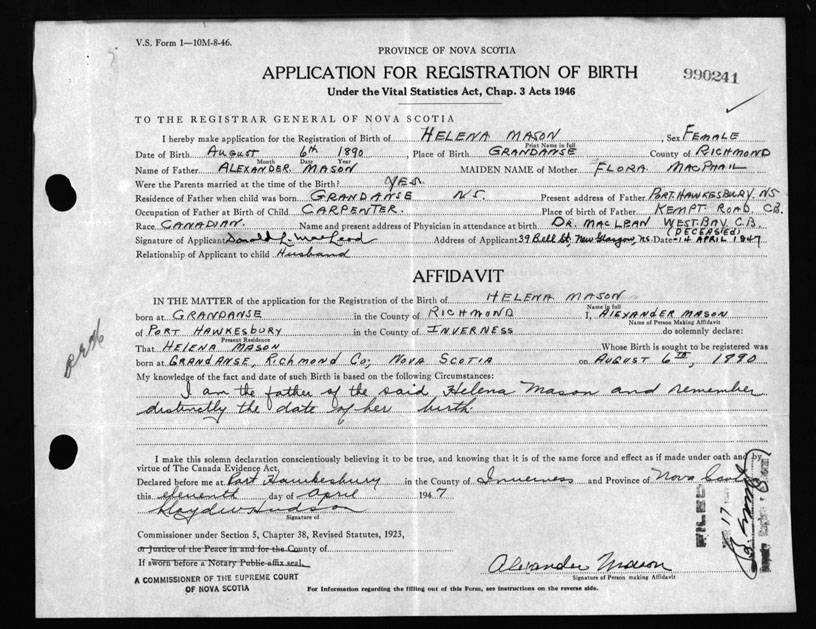 V.S. Form 1—10M-8-46.
PROVINCE OF NOVA SCOTIA
APPLICATION FOR REGISTRATION OF BIRTH
990241
Under the Vital Statistics Act, Chap. 3 Acts 1946
TO THE REGISTRAR GENERAL OF NOVA SCOTIA
I hereby make application for the Registration of Birth of HELENA MASON, Sex FEMALE
Print Name in full
Date of Birth AUGUST 6th 1890, Place of Birth GRANDANSE County of RICHMOND
Month Date Year
Name of Father ALEXANDER MASON MAIDEN NAME of Mother FLORA MACPHAIL
Were the Parents married at the time of the Birth? YES.
Residence of Father when child was born GRANDANSE N.S. Present address of Father PORT HAWKESBURY, NS
Occupation of Father at Birth of Child CARPENTER. Place of birth of Father KEMPT ROAD, C.B.
Race CANADIAN. Name and present address of Physician in attendance at birth DR. MACLEAN WEST BAY C.B.
(DECEASED)
Signature of Applicant Donald L. MacLeod Address of Applicant 39 Bell St, New Glasgow, N.S. Date 14 APRIL 1947
Relationship of Applicant to child Husband
AFFIDAVIT
IN THE MATTER of the application for the Registration of the Birth of HELENA MASON
Name in full
born at GRANDANSE in the County of RICHMOND I, ALEXANDER MASON
Name of Person Making Affidavit
of PORT HAWKESBURY in the County of INVERNESS do solemnly declare:
Present Residence
That HELENA MASON Whose Birth is sought to be registered was
born at GRANDANSE, RICHMOND CO, NOVA SCOTIA on AUGUST 6TH, 1890
My knowledge of the fact and date of such Birth is based on the following Circumstances:
I am the father of the said Helena Mason and remember
distinctly the date of her birth.
I make this solemn declaration conscientiously believing it to be true, and knowing that it is of the same force and effect as if made under oath and by
virtue of The Canada Evidence Act.
Declared before me at Port Hawkesbury in the County of Inverness and Province of Nova Scotia
this eleventh day of April 1947
Lloyd W Hudson
Signature of
Commissioner under Section 5, Chapter 38, Revised Statutes, 1923,
or Justice of the Peace in and for the County of
If sworn before a Notary Public affix seal.
Alexander Mason
Signature of Person making Affidavit
A COMMISSIONER OF THE SUPREME COURT
OF NOVA SCOTIA
For Information regarding the filling out of this Form, see instructions on the reverse side.
FILED